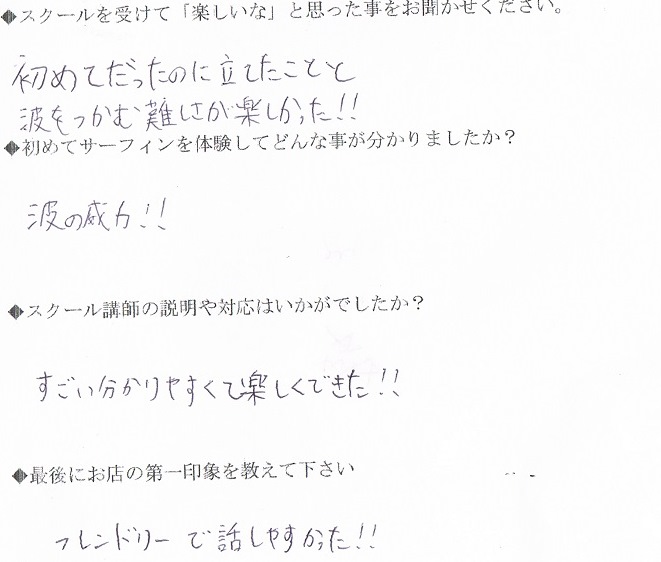 ◆スクールを受けて「楽しいな」と思った事をお聞かせください。
初めてだったのに立てたことと
波をつかむ難しさが楽しかった!!
◆初めてサーフィンを体験してどんな事が分かりましたか？
波の威力!!
◆スクール講師の説明や対応はいかがでしたか？
すごい分かりやすくて楽しくできた!!
◆最後にお店の第一印象を教えて下さい
フレンドリーで話しやすかった!!